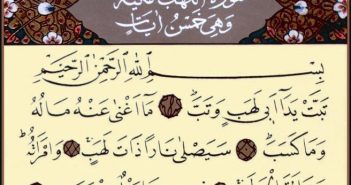 سورة اللهب مكية
وهي خمس آيات
بِسْمِ اللَّهِ الرَّحْمَٰنِ الرَّحِيمِ
تَبَّتْ يَدَا أَبِي لَهَبٍ وَتَبَّ مَا أَغْنَىٰ عَنْهُ مَالُهُ
وَمَا كَسَبَ سَيَصْلَىٰ نَارًا ذَاتَ لَهَبٍ وَامْرَأَتُهُ